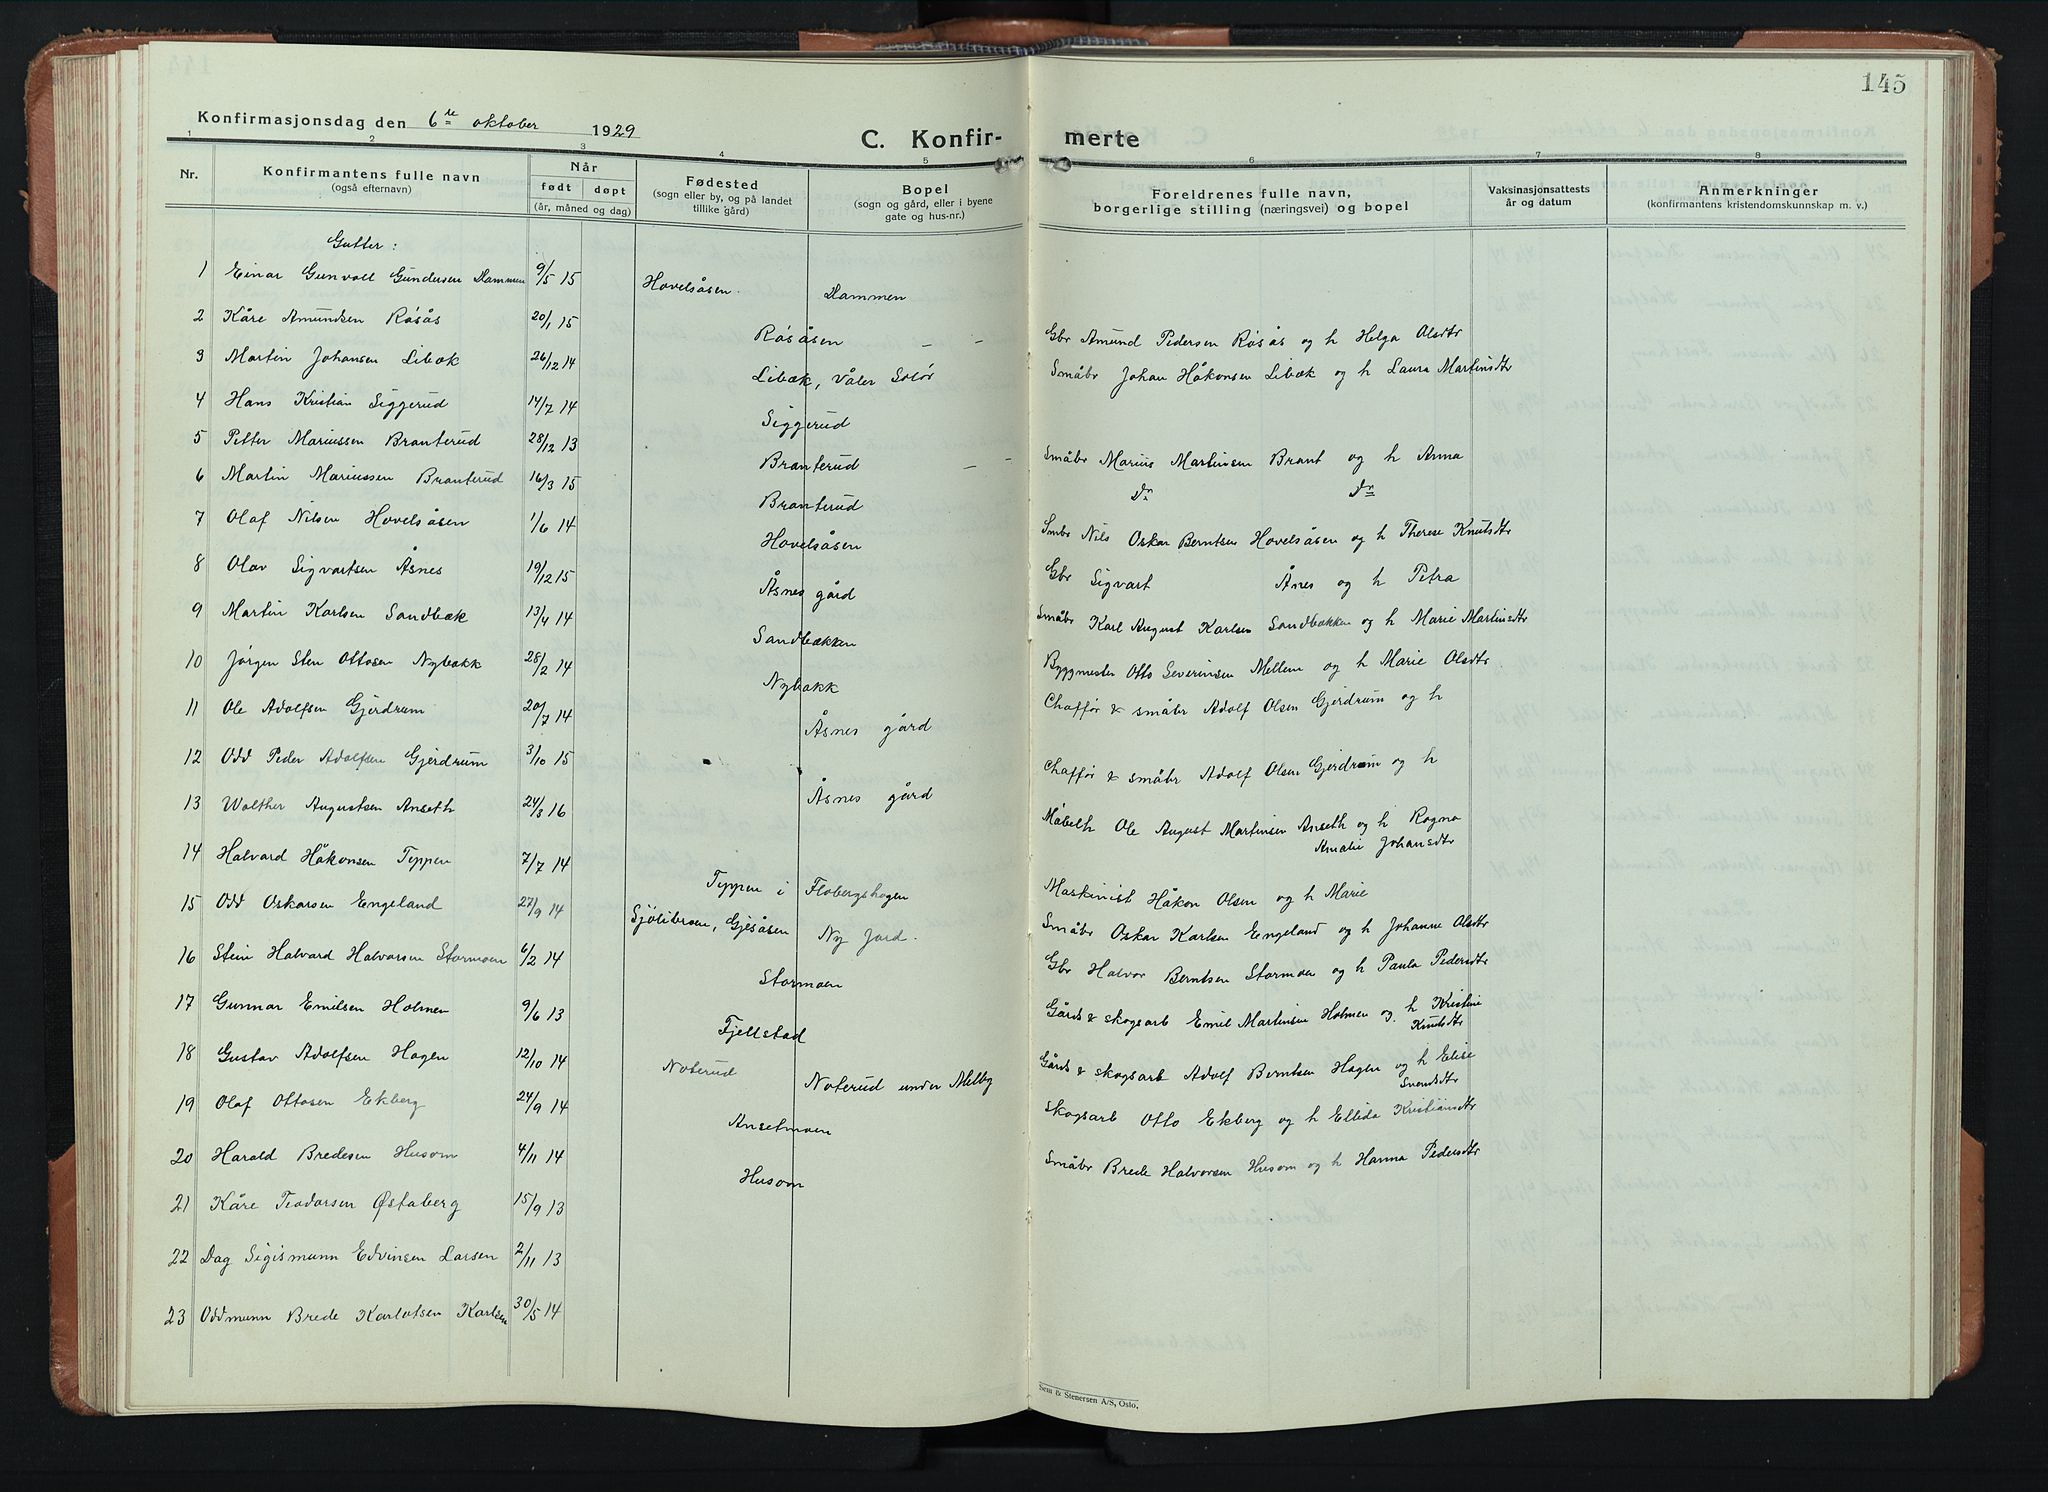 145
Konfirmasjonsdag den 6te oktober 1929
C. Konfir- merte
1 2 3 4 5 6 7 8
Nr. Konfirmantens fulle navn (også efternavn) Når født døpt (år, måned og dag) Fødested (sogn eller by, og på landet tillike gård) Bopel (sogn og gård, eller i byene gate og hus-nr.) Foreldrenes fulle navn, borgerlige stilling (næringsvei) og bopel Vaksinasjonsattests år og datum Anmerkninger (konfirmantens kristendomskunnskap m. v.)
Gutter:
1 Einar Gunvall Gundersen Dammen 9/5 15 Hovelsåsen. Dammen
2 Kåre Amundsen Røsås 20/1 15 Røsåsen – – Gbr Amund Pedersen Røsås og h Helga Olsdtr
3 Martin Johansen Libæk 26/12 14 Libæk, Våler Solør Småbr Johan Håkonsen Libæk og h Laura Martinsdtr
4 Hans Kristian Siggerud 14/7 14 Siggerud
5 Petter Mariussen Branterud 28/12 13 Branterud – – Småbr Marius Martinsen Brant og h Anna
6 Martin Mariussen Branterud 16/3 15 Branterud Do Do
7 Olaf Nilsen Hovelsåsen 1/6 14 Hovelsåsen Smbr Nils Oskar Berntsen Hovelsåsen og h Therese Knutsdtr
8 Olav Sigvartsen Åsnes 19/12 15 Åsnes gård Gbr Sigvart Ånes og h Petra
9 Martin Karlsen Sandbæk 13/4 14 Sandbækken Småbr Karl August Karlsen Sandbakken og h Marie Martinsdtr
10 Jørgen Sten Ottosen Nybakk 28/2 14 Nybakk Byggmester Otto Severinsen Mellem og h Marie Olsdtr
11 Ole Adolfsen Gjerdrum 20/7 14 Åsnes gård Chaffør & småbr Adolf Olsen Gjerdrum og h
12 Odd Peder Adolfsen Gjerdrum 3/10 15 Åsnes gård Chaffør & småbr Adolf Olsen Gjerdrum og h
13 Walther Augustsen Anseth 24/3 16 Møbelh Ole August Martinsen Anseth og h Ragna Amalie Johansdtr
14 Halvard Håkonsen Teppen 7/7 14 Teppen i Flobergshagen Maskinist Håkon Olsen og h Marie
15 Odd Oskarsen Engeland 27/9 14 Sjølibroen, Gjesåsen Ny Jord. Småbr Oskar Karlsen Engeland og h Johanne Olsdtr
16 Stein Halvard Halvorsen Stormoen 6/2 14 Stormoen Gbr Halvor Berntsen Stormoen og h Paula Pedersdtr
17 Gunnar Emilsen Holmen 9/6 13 Fjellstad Gårds & skogsarb Emil Martinsen Holmen og h Kristine Knutsdtr
18 Gustav Adolfsen Hagen 12/10 14 Noterud Noterud under Melby Gårds & skogsarb Adolf Berntsen Hagen og h Elise Svendsdtr
19 Olaf Ottosen Ekberg 24/9 14 Ansetmoen Skogsarb Otto Ekberg og h Ellida Kristiansdtr
20 Harald Bredesen Husom 4/11 14 Husom Småbr Brede Halvorsen Husom og h Hanna Pedersdtr
21 Kåre Teodorsen Østaberg 15/9 13
22 Dag Sigismunn Edvinsen Larsen 2/11 13
23 Oddmunn Brede Karlotsen Karlsen 30/5 14
Sem & Stenersen A/S, Oslo.